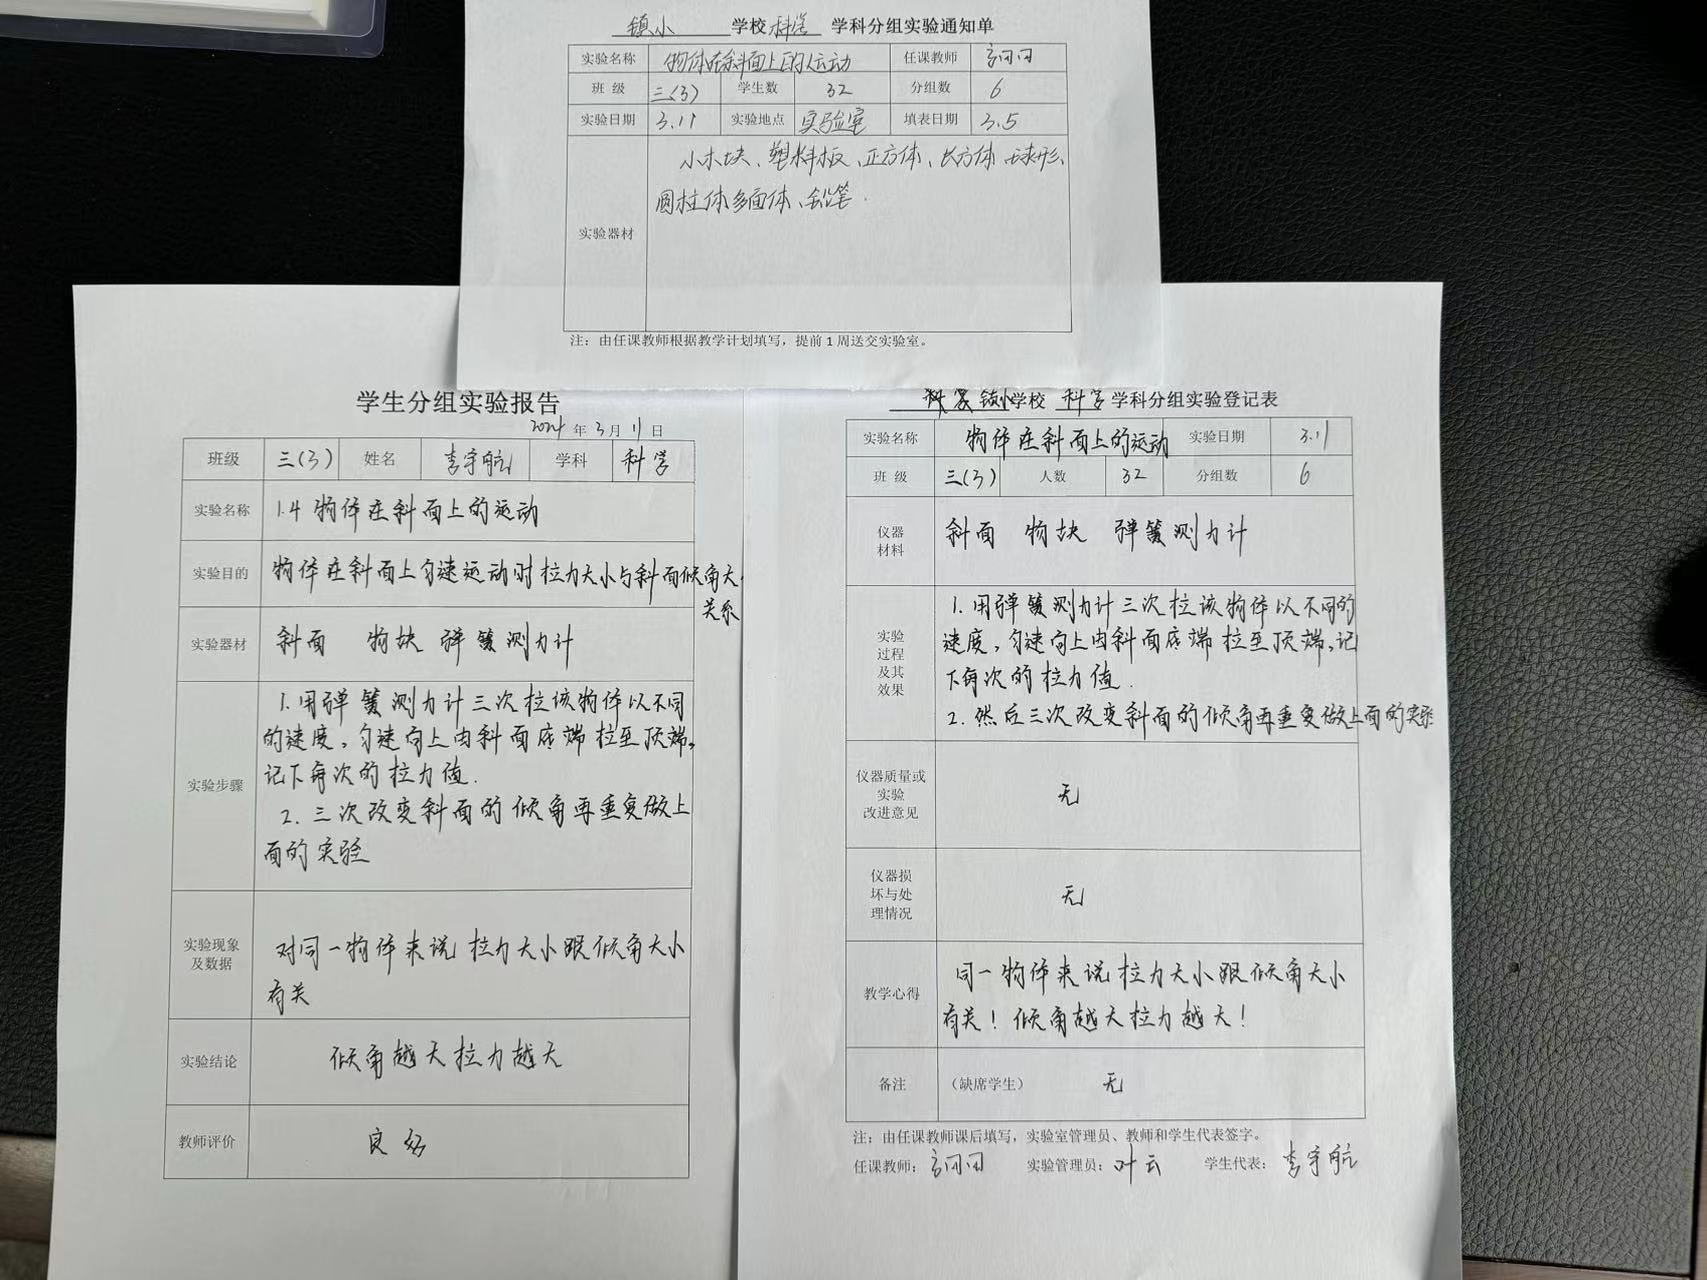 镇小 学校 科学 学科分组实验通知单
实验名称 物体在斜面上的运动 任课教师
班 级 三(3) 学生数 32 分组数 6
实验日期 3.11 实验地点 实验室 填表日期 3.5
小木块、塑料板、正方体、长方体、球形、
圆柱体多面体、铅笔.
实验器材
注：由任课教师根据教学计划填写，提前 1 周送交实验室。
学生分组实验报告
2024 年 3 月 11 日
班级 三(3) 姓名 李宇航 学科 科学
实验名称 1.4 物体在斜面上的运动
实验目的 物体在斜面上匀速运动时拉力大小与斜面倾角大
关系
实验器材 斜面 物块 弹簧测力计
实验步骤
1. 用弹簧测力计三次拉该物体以不同
的速度，匀速向上由斜面底端拉至顶端，
记下每次的拉力值.
2. 三次改变斜面的倾角再重复做上
面的实验
实验现象
及数据
对同一物体来说拉力大小跟倾角大小
有关
实验结论 倾角越大拉力越大
教师评价 良好
镇小学校 科学 学科分组实验登记表
实验名称 物体在斜面上的运动 实验日期 3.11
班 级 三(3) 人数 32 分组数 6
仪器
材料
斜面 物块 弹簧测力计
实验
过程
及其
效果
1. 用弹簧测力计三次拉该物体以不同的
速度，匀速向上由斜面底端拉至顶端，记
下每次的拉力值.
2. 然后三次改变斜面的倾角再重复做上面的实验
仪器质量或
实验
改进意见
无
仪器损
坏与处
理情况
无
教学心得
同一物体来说拉力大小跟倾角大小
有关！倾角越大拉力越大！
备注 （缺席学生） 无
注：由任课教师课后填写，实验室管理员、教师和学生代表签字。
任课教师： 实验管理员：叶云 学生代表：李宇航